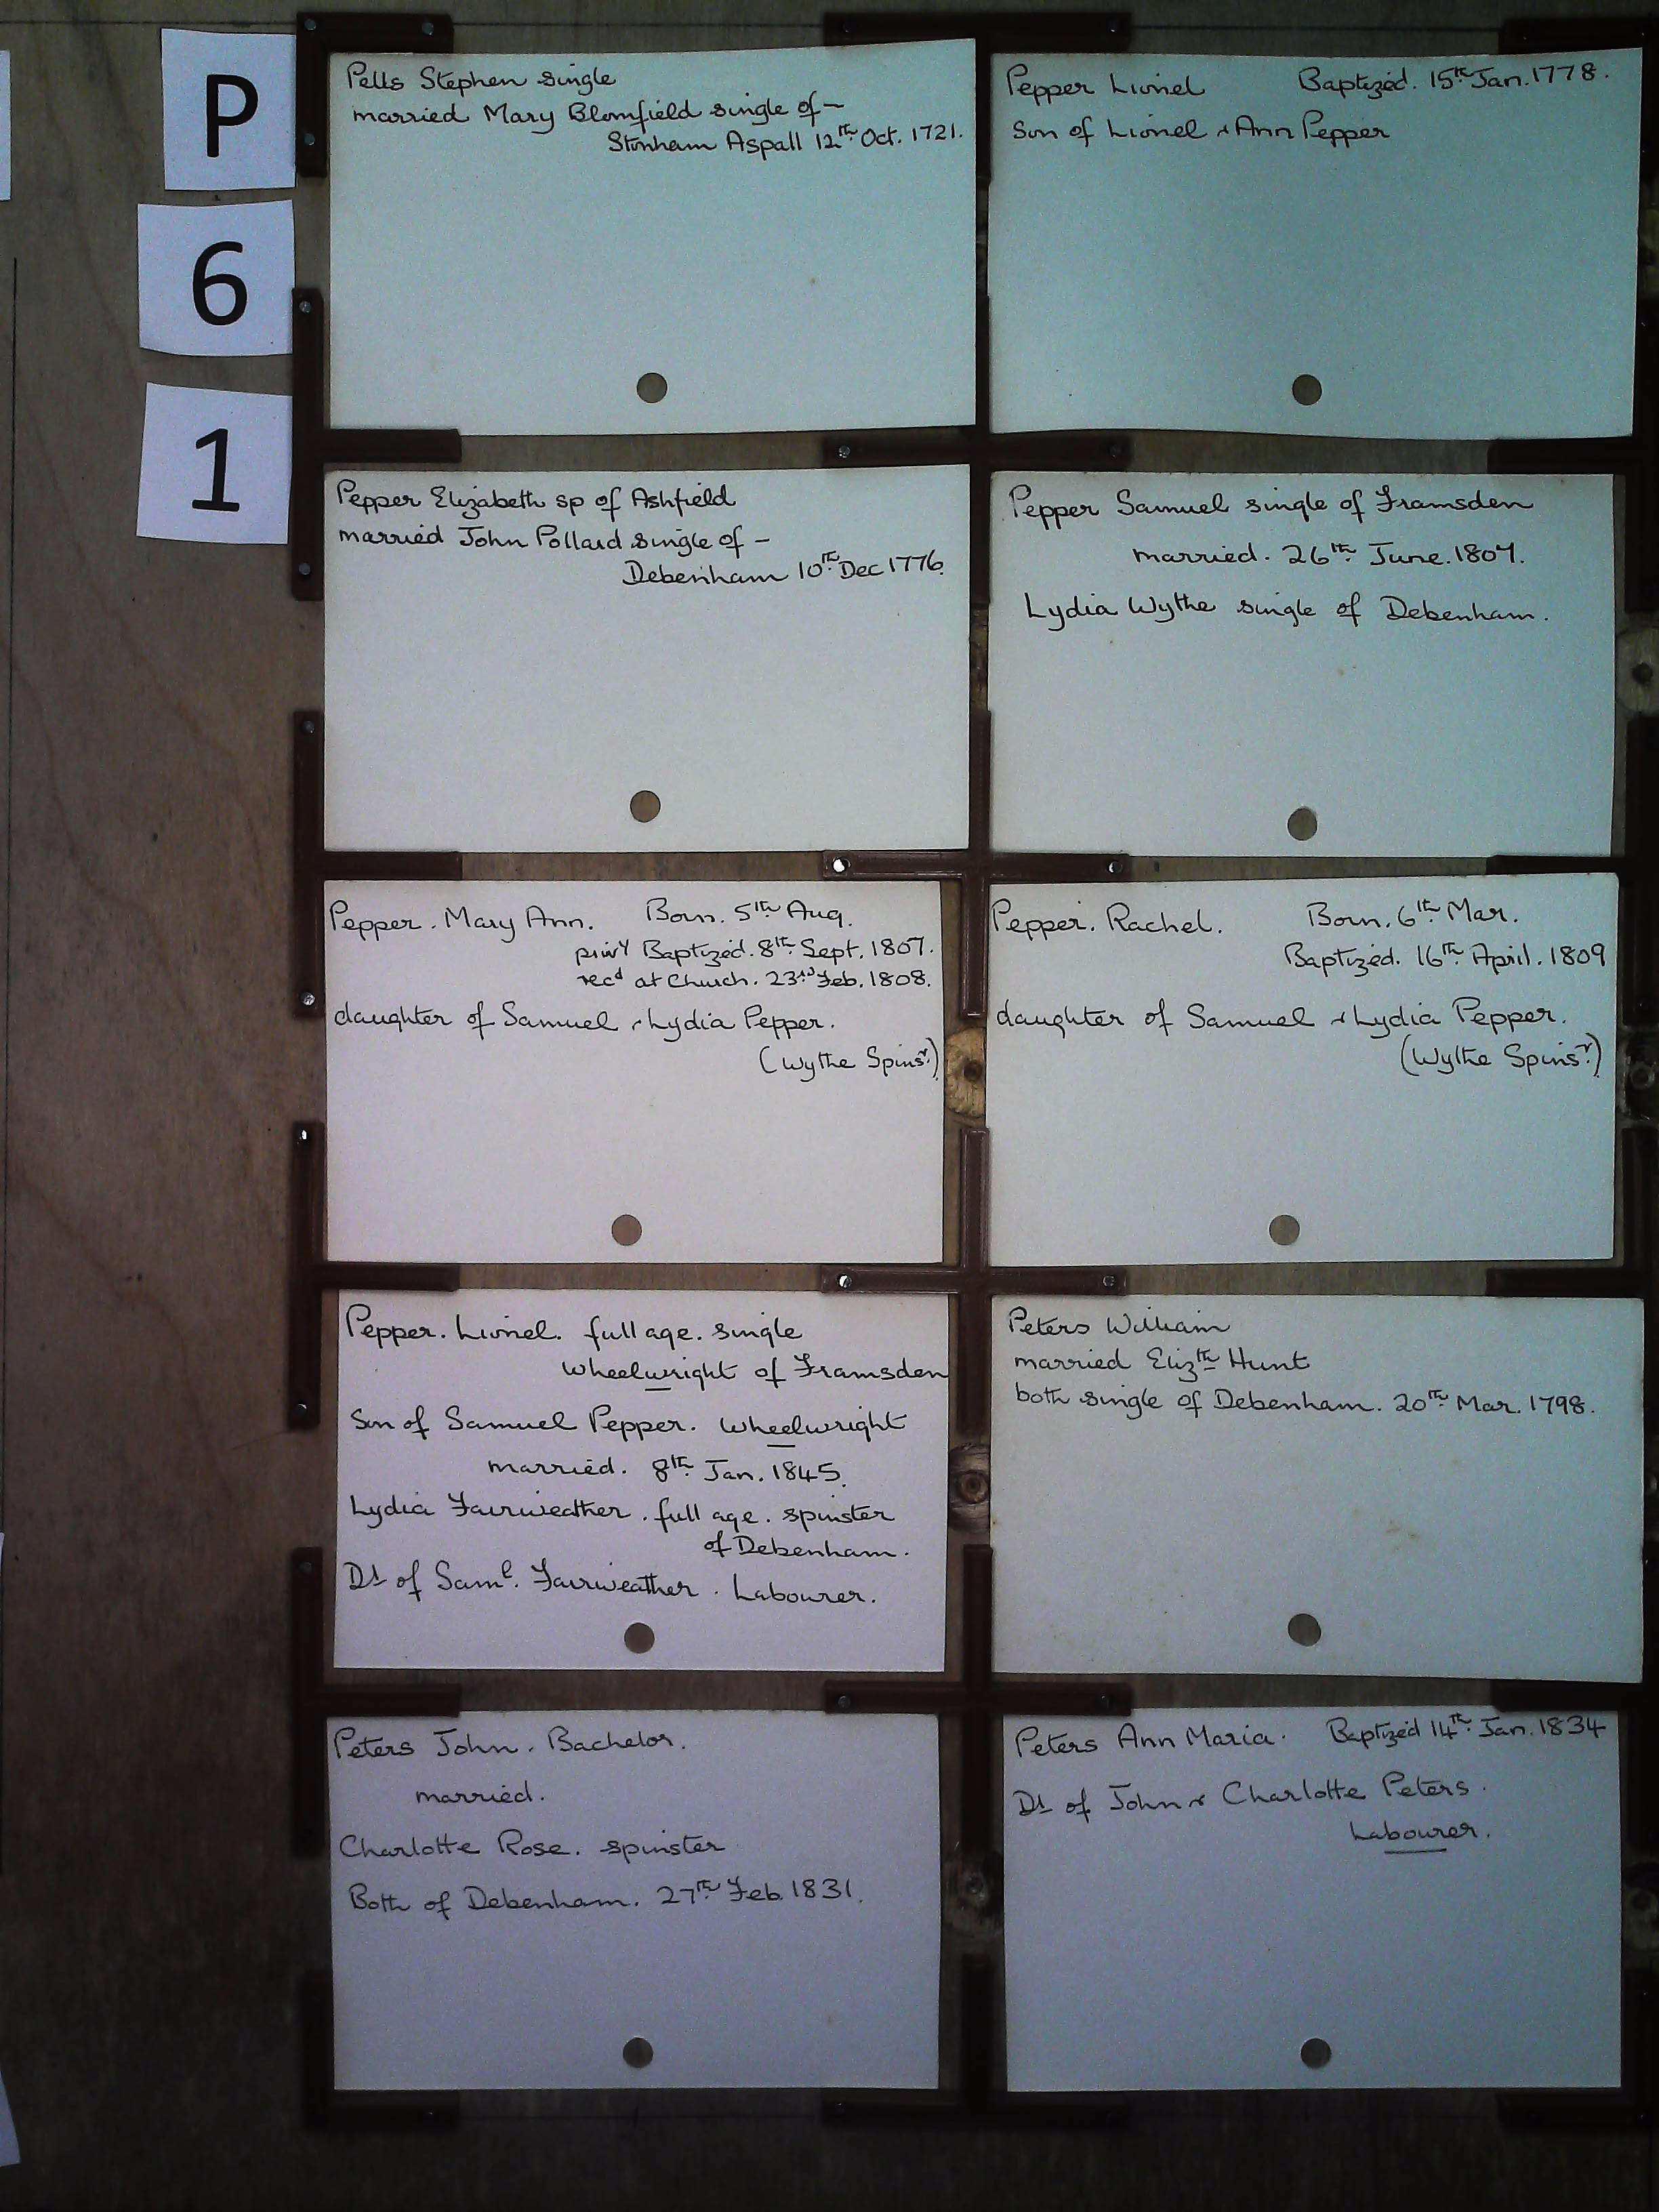 P
6
1
Pells Stephen single
married Mary Blomfield single of -
Stonham Aspall 12th Oct. 1721.
Pepper Lionel Baptized. 15th Jan. 1778.
Son of Lionel & Ann Pepper
Pepper Elizabeth sp of Ashfield
married John Pollard single of -
Debenham 10th Dec 1776.
Pepper Samuel single of Framsden
married. 26th June. 1807.
Lydia Wythe single of Debenham.
Pepper. Mary Ann. Born. 5th Aug.
privy Baptized. 8th Sept. 1807.
recd at Church. 23rd Feb. 1808.
daughter of Samuel & Lydia Pepper.
(Wythe Spinsr.)
Pepper. Rachel. Born. 6th Mar.
Baptized. 16th April. 1809
daughter of Samuel & Lydia Pepper.
(Wythe Spinsr.)
Pepper. Lionel. full age. single
Wheelwright of Framsden
Son of Samuel Pepper. Wheelwright
married. 8th Jan. 1845.
Lydia Fairweather. full age. spinster
of Debenham.
Dr of Saml. Fairweather. Labourer.
Peters William
married Elizth Hunt
both single of Debenham. 20th Mar. 1798.
Peters John. Bachelor.
married.
Charlotte Rose. spinster
Both of Debenham. 27th Feb. 1831.
Peters Ann Maria. Baptized 14th Jan. 1834
Dr of John & Charlotte Peters.
Labourer.